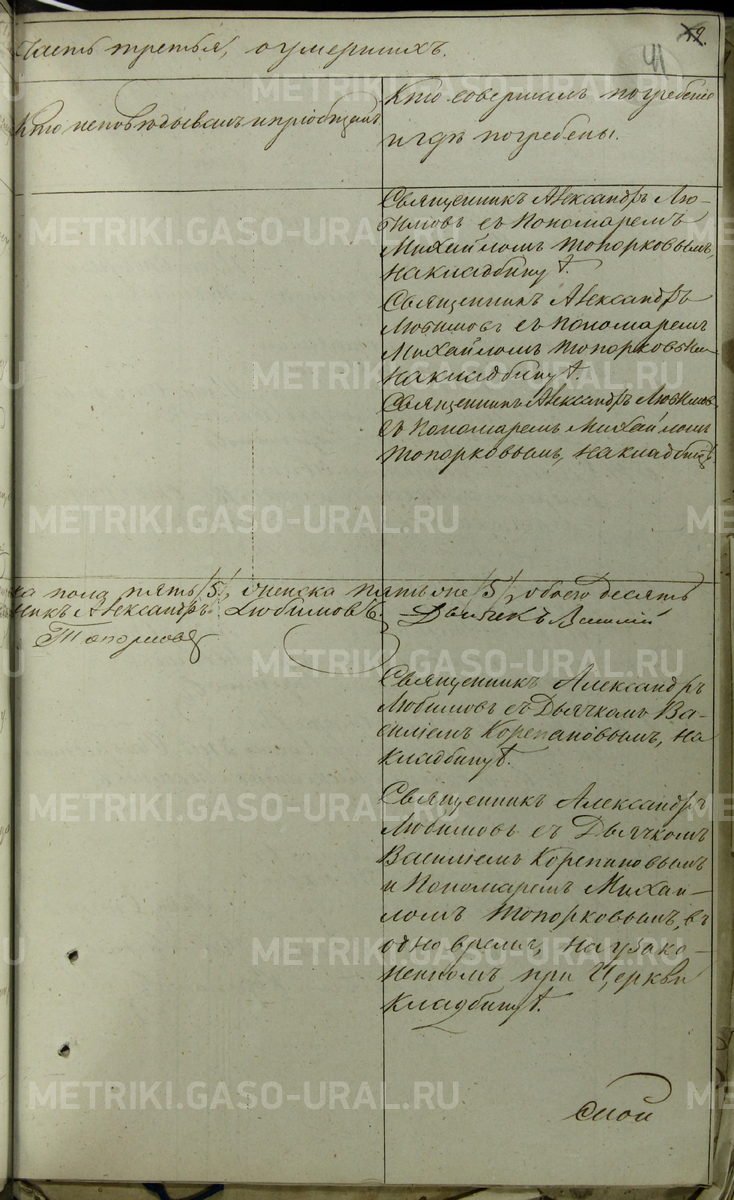 Часть третья, о умершихъ.
41
Кто исповѣдывалъ и пріобщалъ
Кто совершалъ погребеніе
и гдѣ погребены.
Священникъ Александръ Лю-
бимовъ съ Пономаремъ
Михайломъ Топорковымъ,
на кладбищѣ.
Священникъ Александръ
Любимовъ съ Пономаремъ
Михайломъ Топорковым
на кладбищѣ.
Священникъ Александръ Любимовъ
съ Пономаремъ Михайломъ
Топорковымъ, на кладбищѣ
ка пола пять /5/, женска пять /5/, обоего десять
никъ Александръ Любимовъ. Дьячекъ Василій
Топорковъ
Священникъ Александръ
Любимовъ съ Дьячкомъ Ва-
силіемъ Корепановымъ, на
кладбищѣ.
Священникъ Александръ
Любимовъ съ Дьячкомъ
Василіемъ Корепановымъ
и Пономаремъ Михай-
ломъ Топорковымъ, въ
одно время, на узако-
ненномъ при Церкви
кладбищѣ.
METRIKI.GASO-URAL.RU